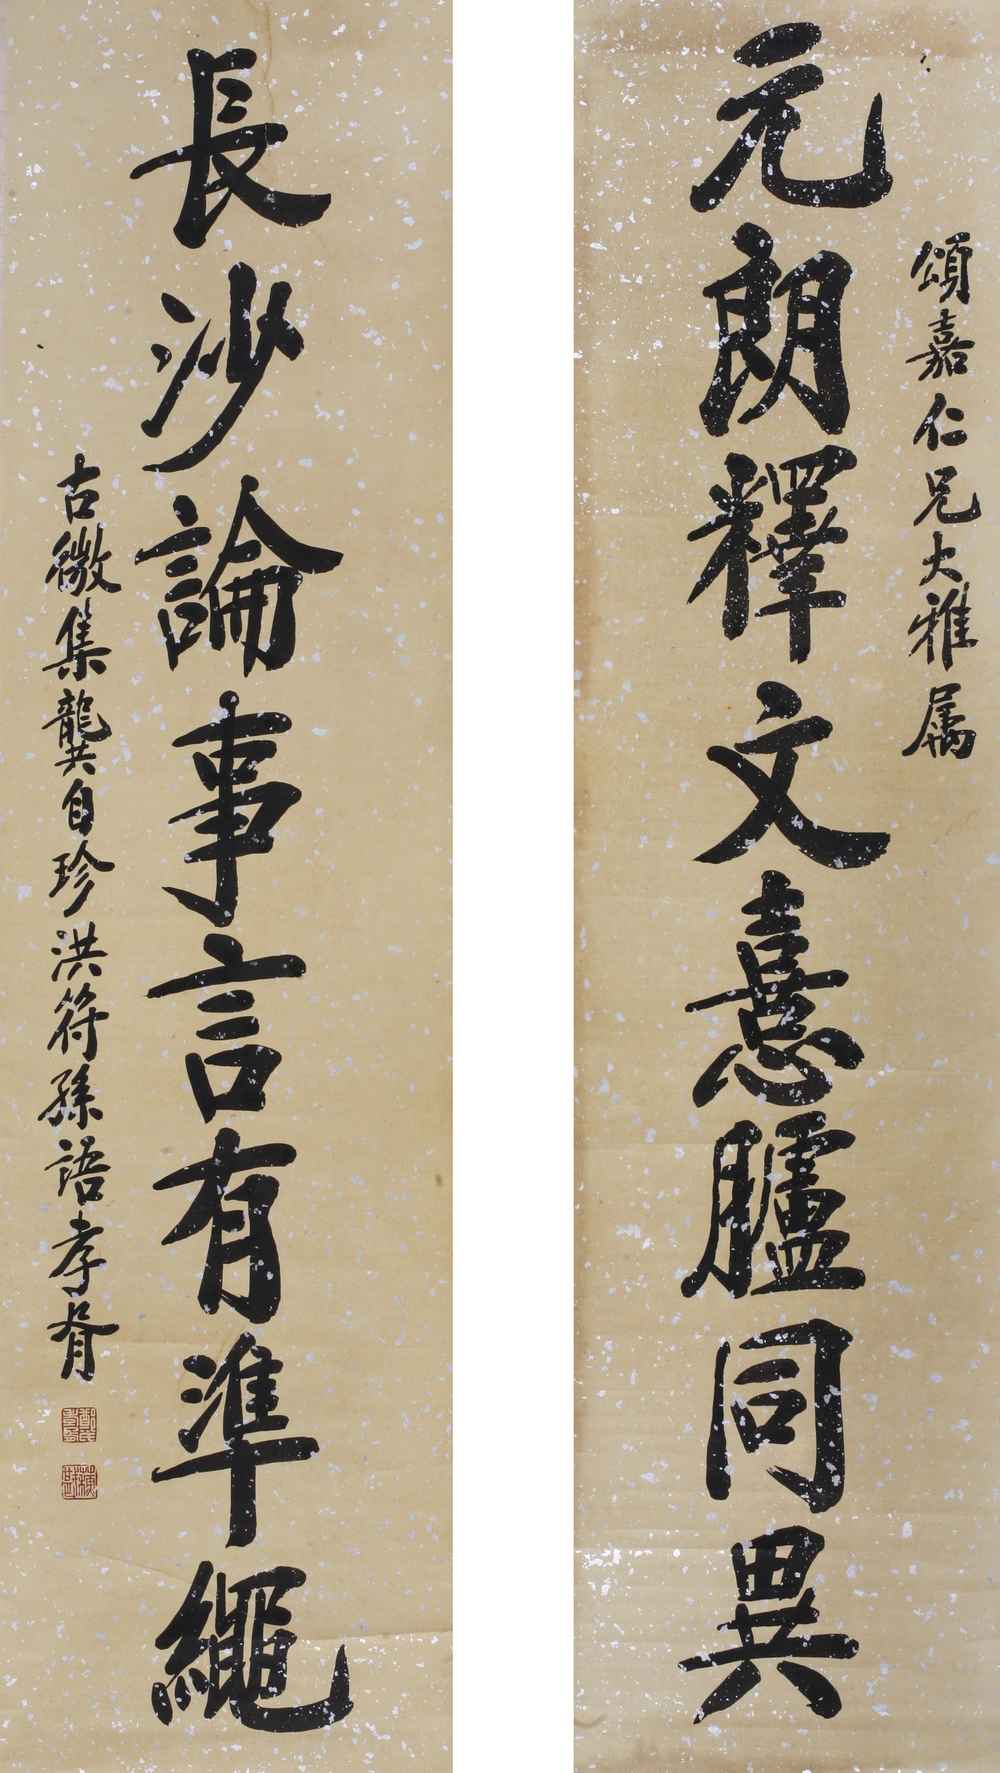 元朗釋文憙臚同異
頌嘉仁兄大雅属
長沙論事言有準繩
古微集龔自珍洪符孫語孝胥